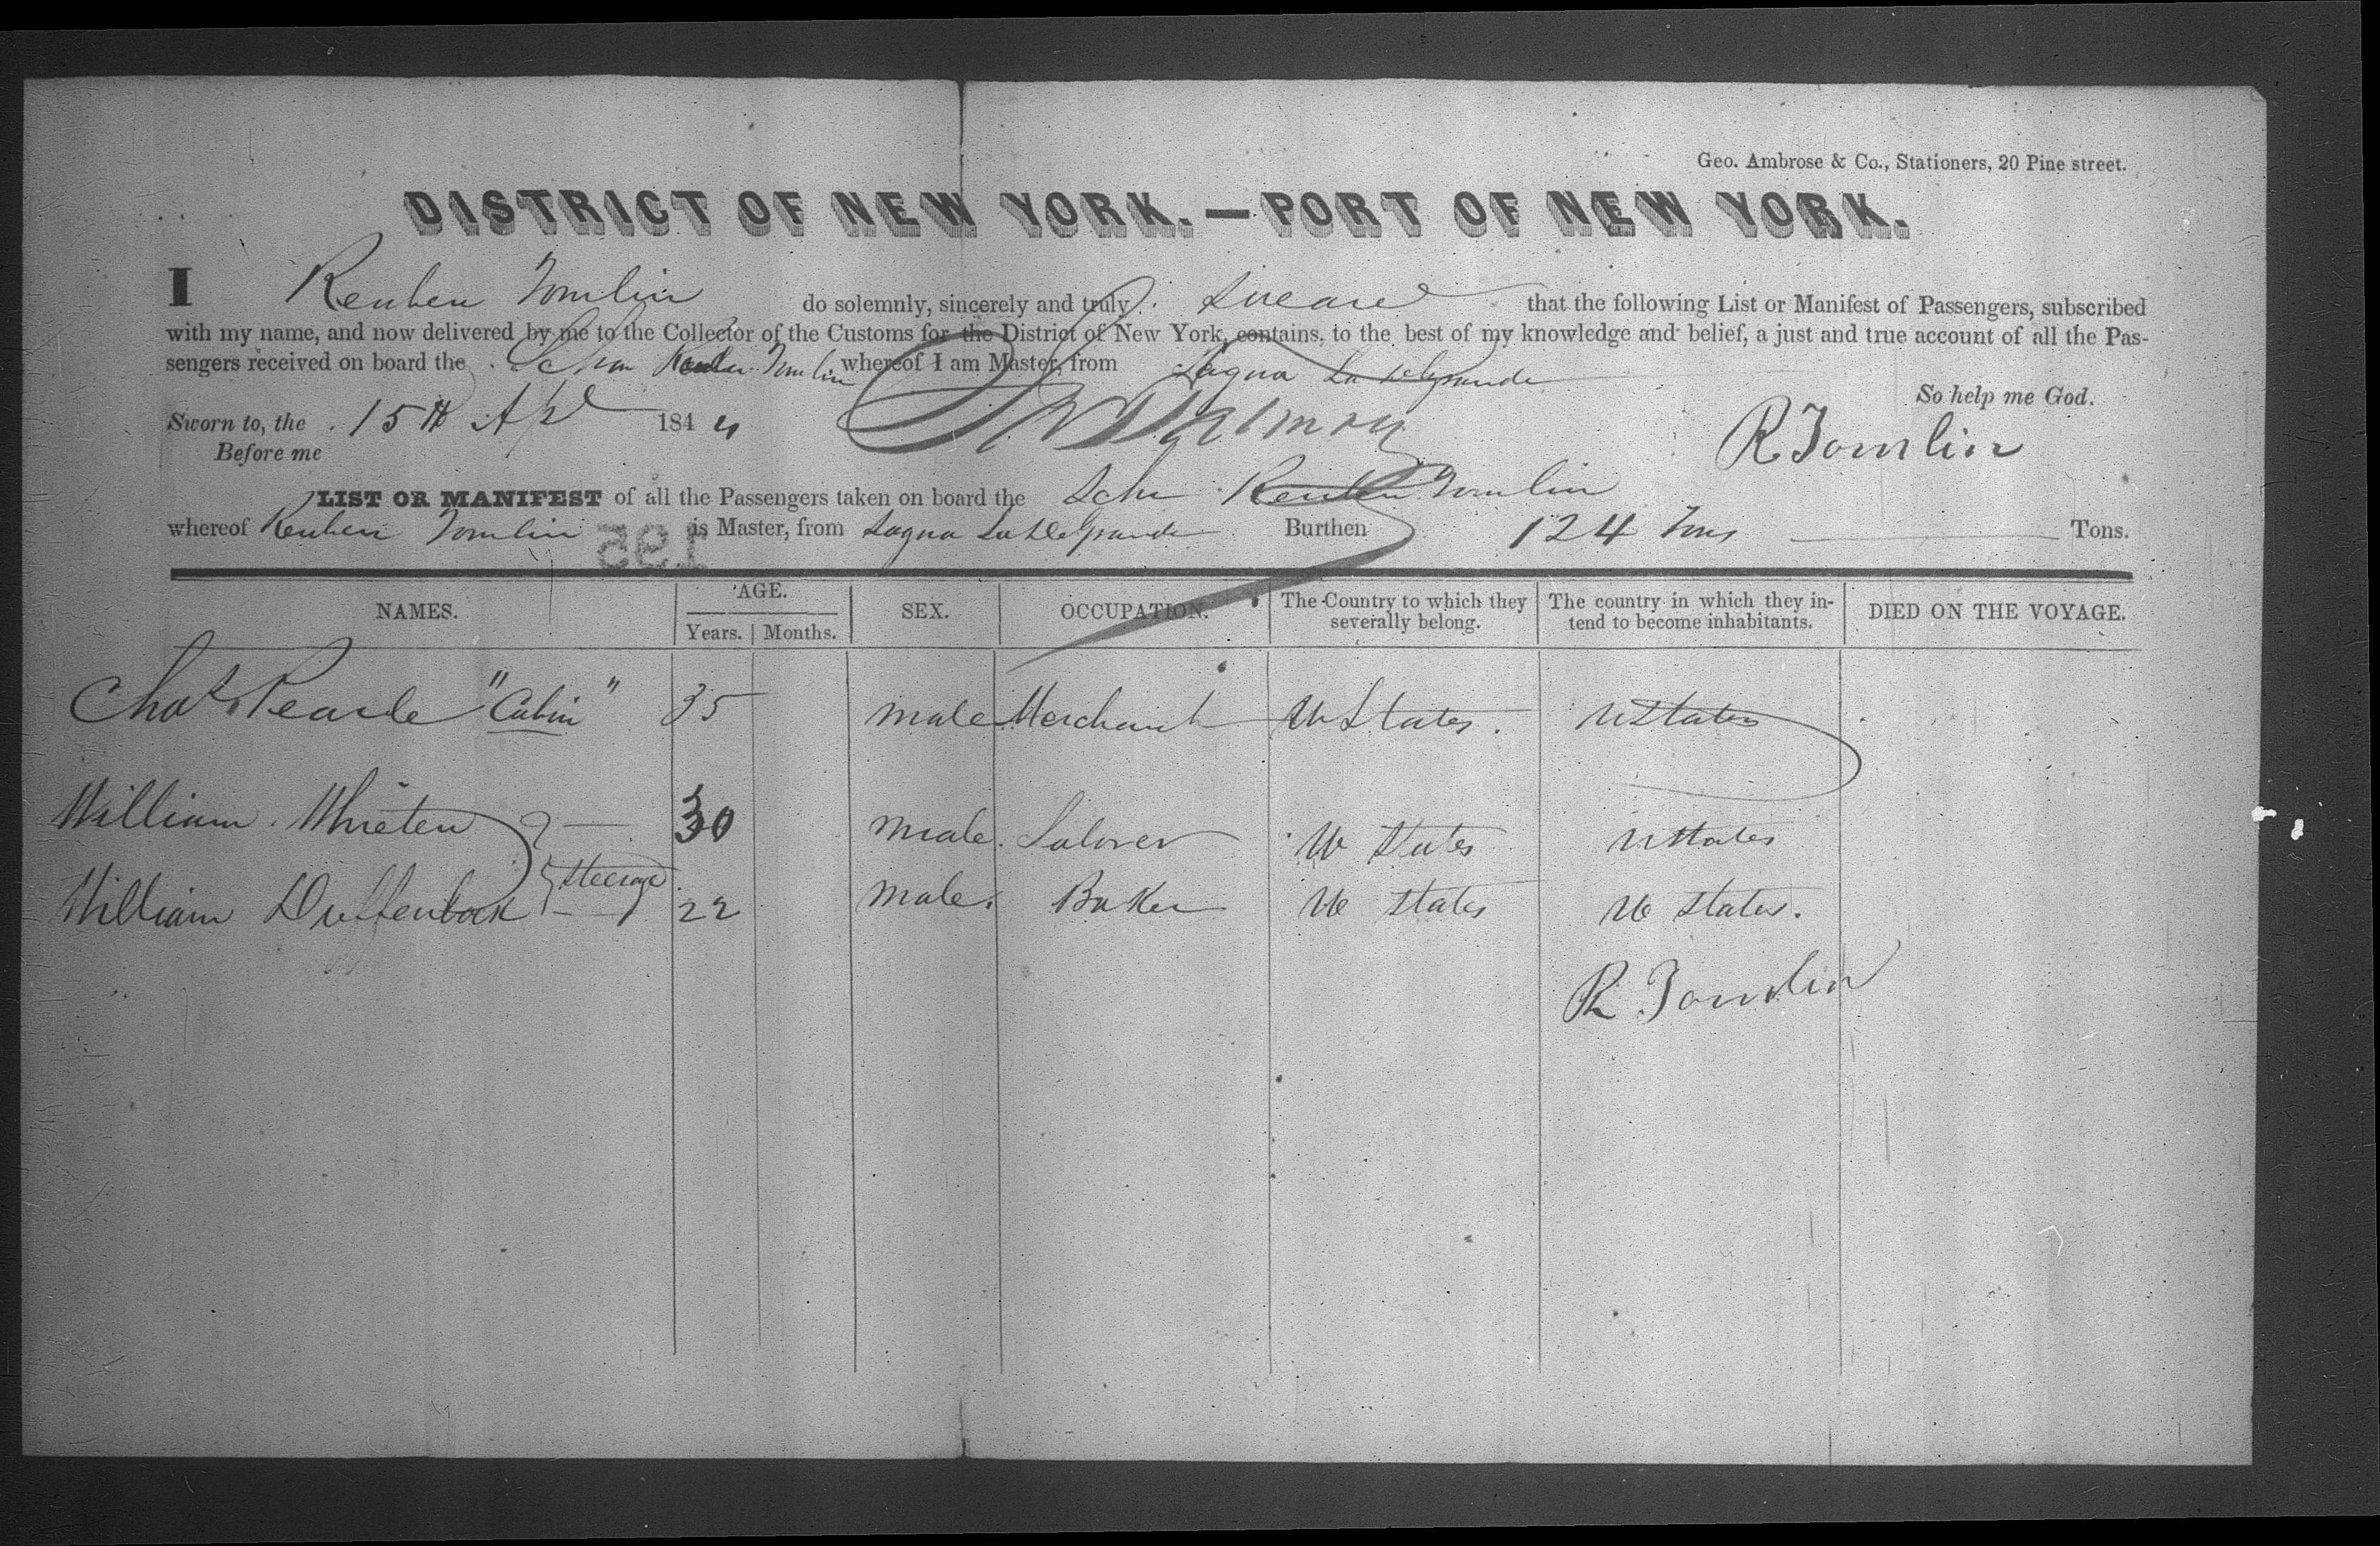 Geo. Ambrose & Co., Stationers, 20 Pine street.
DISTRICT OF NEW YORK.—PORT OF NEW YORK.
I Reuben Tomlin do solemnly, sincerely and truly swear that the following List or Manifest of Passengers, subscribed
with my name, and now delivered by me to the Collector of the Customs for the District of New York, contains, to the best of my knowledge and belief, a just and true account of all the Pas-
sengers received on board the Schr Reuben Tomlin whereof I am Master, from Laguna
So help me God.
Sworn to, the 15th Apl 1844
Before me
R Tomlin
LIST OR MANIFEST of all the Passengers taken on board the Schr Reuben Tomlin
whereof Reuben Tomlin is Master, from Burthen 124 Tons Tons.
195
NAMES. AGE. SEX. OCCUPATION. The Country to which they severally belong. The country in which they in-tend to become inhabitants. DIED ON THE VOYAGE.
Years. Months.
Chas Pearle "Cabin" 35 male Merchant U States. U States
William 30 male. Laborer U States U States
Steerage
William Duffenback 22 male. Baker U States U States.
R Tomlin